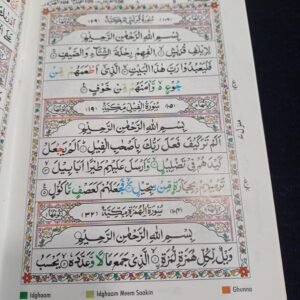 سُوْرَةُ قُرَيْشٍ مَكِّيَّةٌ (٢٩)
بِسْمِ اللّٰهِ الرَّحْمٰنِ الرَّحِيْمِ
لِاِيْلٰفِ قُرَيْشٍ اٖلٰفِهِمْ رِحْلَةَ الشِّتَآءِ وَالصَّيْفِ
فَلْيَعْبُدُوْا رَبَّ هٰذَا الْبَيْتِ الَّذِيْٓ اَطْعَمَهُمْ مِّنْ
جُوْعٍ وَّاٰمَنَهُمْ مِّنْ خَوْفٍ
سُوْرَةُ الْفِيْلِ مَكِّيَّةٌ (١٩)
بِسْمِ اللّٰهِ الرَّحْمٰنِ الرَّحِيْمِ
اَلَمْ تَرَ كَيْفَ فَعَلَ رَبُّكَ بِاَصْحٰبِ الْفِيْلِ اَلَمْ يَجْعَلْ
كَيْدَهُمْ فِيْ تَضْلِيْلٍ وَّاَرْسَلَ عَلَيْهِمْ طَيْرًا اَبَابِيْلَ
تَرْمِيْهِمْ بِحِجَارَةٍ مِّنْ سِجِّيْلٍ فَجَعَلَهُمْ كَعَصْفٍ مَّاْكُوْلٍ
سُوْرَةُ الْهُمَزَةِ مَكِّيَّةٌ (٣٢)
بِسْمِ اللّٰهِ الرَّحْمٰنِ الرَّحِيْمِ
وَيْلٌ لِّكُلِّ هُمَزَةٍ لُّمَزَةٍ الَّذِيْ جَمَعَ مَالًا وَّعَدَّدَهٗ يَحْسَبُ
Idghaam Idghaam Meem Saakin Ghunna